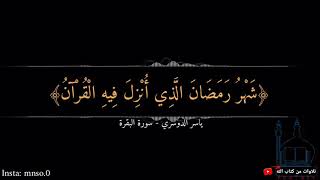 ﴿شَهْرُ رَمَضَانَ الَّذِي أُنْزِلَ فِيهِ الْقُرْآنُ﴾
ياسر الدوسري - سورة البقرة
Insta: mnso.0
تلاوات من كتاب الله